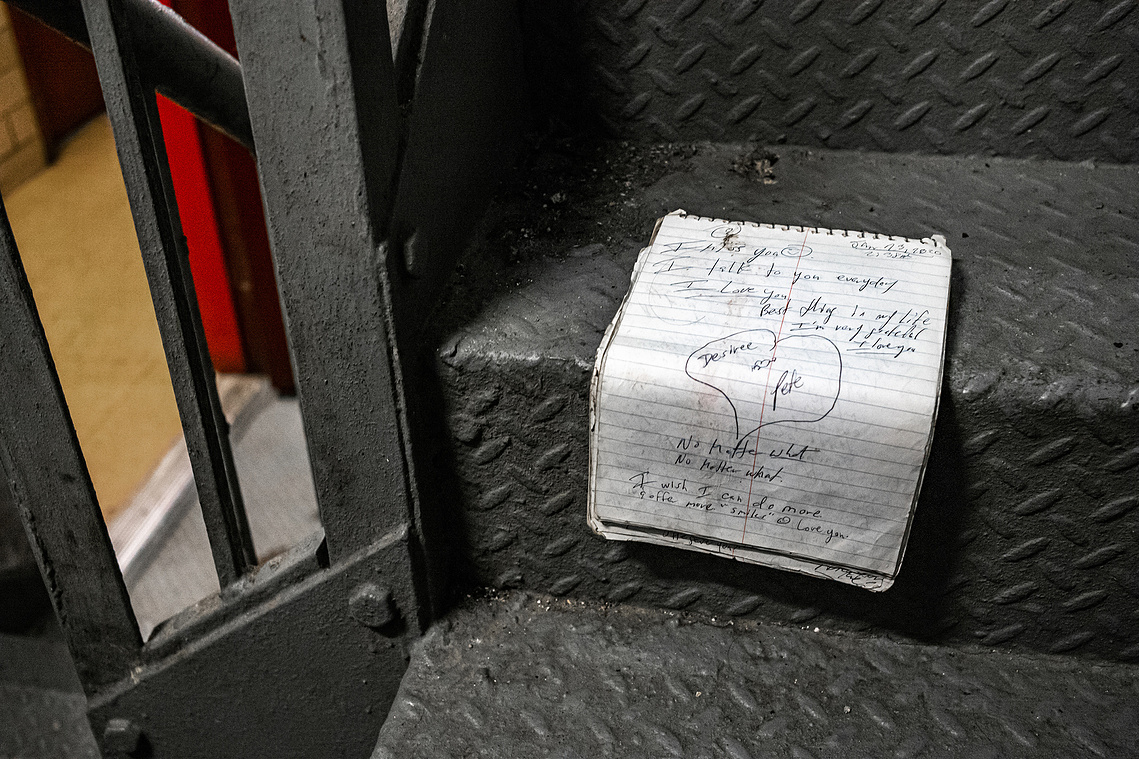 I miss you
I talk to you everyday
I Love you
Best thing in my life
I'm very grateful
I love you
Desiree
Pete
No matter what
No matter what.
I wish I can do more
& offe more "smiles" Love you.